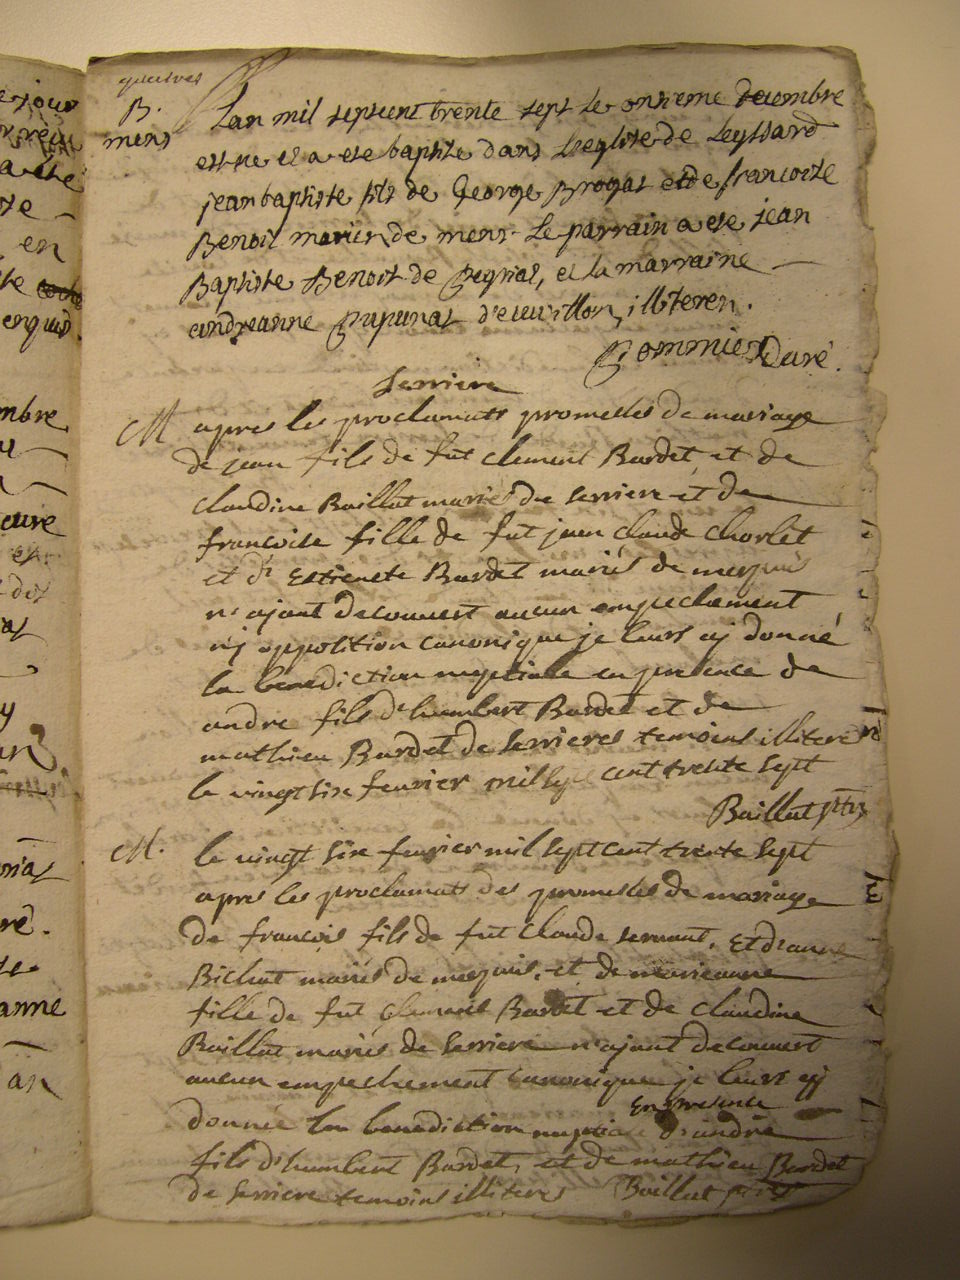 B.
mens
Lan mil septcent trente sept le onzieme decembre
est ne et a ete baptise dans Leglise de Leyssard
jean baptiste fils de George Brogat et de francoise
Benoit maries de mens. Le parrain a ete jean
Baptiste Benoit de , et la marraine
andreanne d'euvillon, illiteren.
curé.
Serriere
M apres les proclamats promesses de mariage
de jean fils de fut clement Bardet, et de
claudine Baillat mariés de serriere et de
francoise fille de fut jean claude chorlet
et d' Estienete Bardet mariés de
n'ajant decouvert aucun empechement
n'j opposition canonique je leurs aj donné
la benediction nuptiale en presence de
andre fils d'humbert Bardet et de
mathieu Bardet de serrieres temoins illiteres
le vingt sixe feuvrier mil sept cent trente sept
Baillat
M. le vingt sixe feuvrier mil sept cent trente sept
apres les proclamats des promesses de mariage
de françois fils de fut claude servant, et d'anne
Bichat mariés de et de marieanne
fille de fut clement Bardet et de claudine
Baillat mariés de serriere n'ajant decouvert
aucun empechement canonique je leurs aj
en presence
donnée la benediction nuptiale d'andré
fils d'humbert Bardet, et de mathieu Bardet
de serriere temoins illiteres Baillat